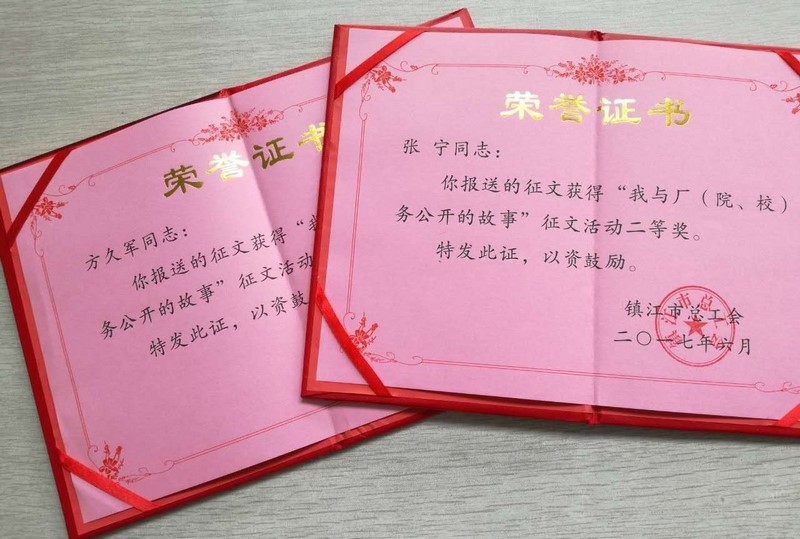 荣誉证书
方久军同志：
你报送的征文获得“我
务公开的故事”征文活动
特发此证，以资
荣誉证书
张 宁同志：
你报送的征文获得“我与厂（院、校）
务公开的故事”征文活动二等奖。
特发此证，以资鼓励。
镇江市总工会
二〇一七年六月